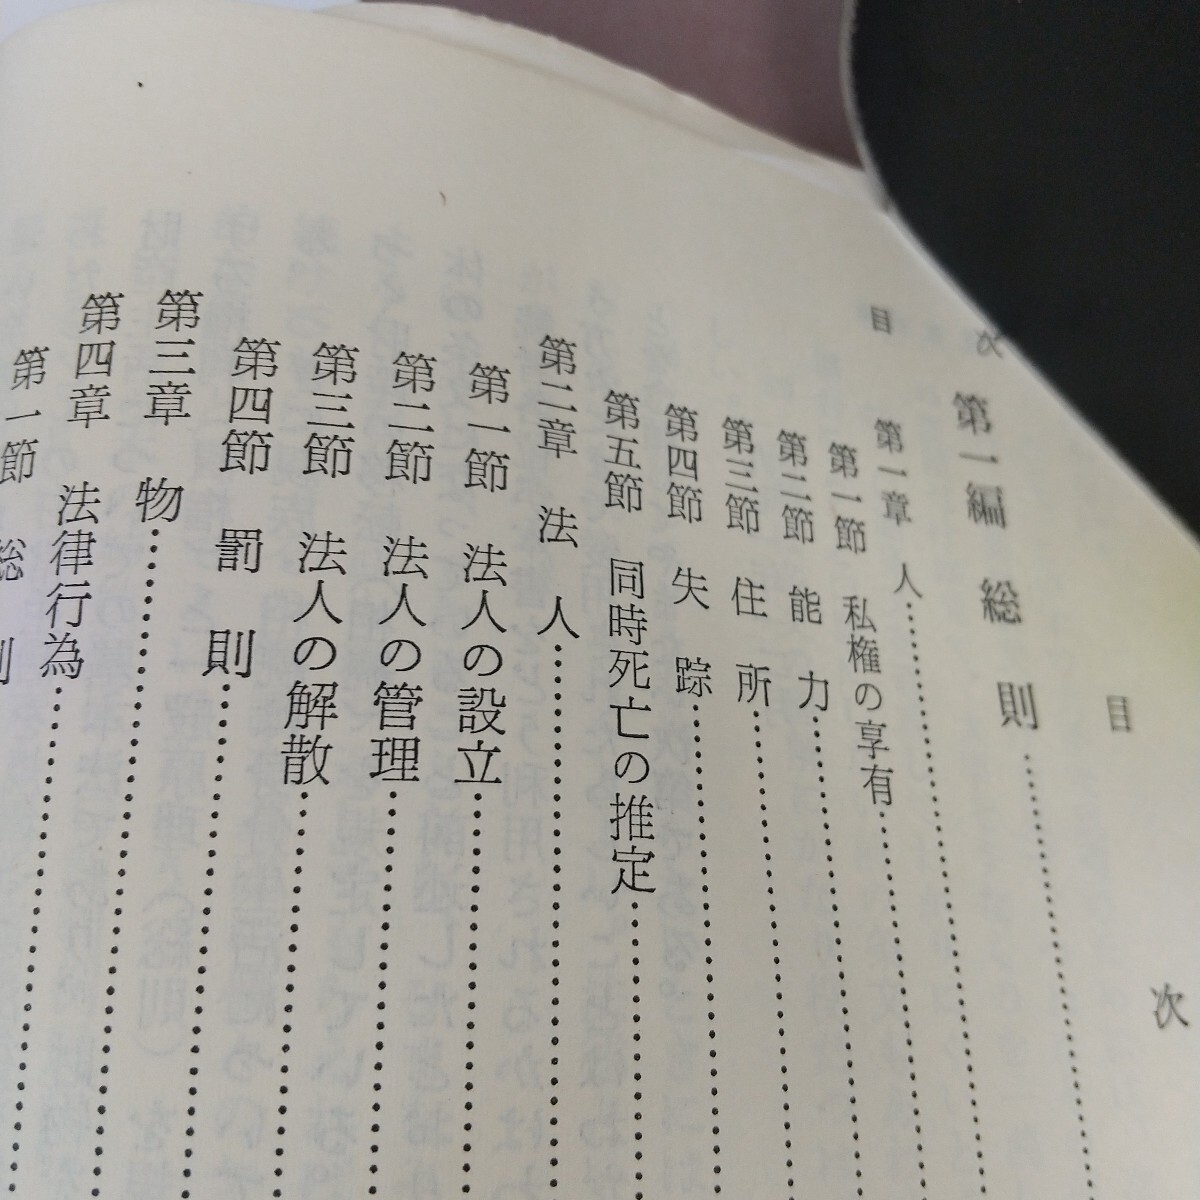 目次
目次
第一編 総則
第一章 人
第一節 私権の享有
第二節 能力
第三節 住所
第四節 失踪
第五節 同時死亡の推定
第二章 法人
第一節 法人の設立
第二節 法人の管理
第三節 法人の解散
第四節 罰則
第三章 物
第四章 法律行為
第一節 総則